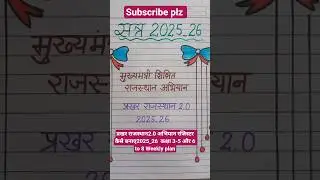 Subscribe plz
सत्र 2025-26
मुख्यमंत्री शिक्षित
राजस्थान अभियान
प्रखर राजस्थान 2.0
2025-26
प्रखर राजस्थान2.0 अभियान रजिस्टर
कैसे बनाए2025_26 कक्षा 3-5 और 6
to 8 Weekly plan